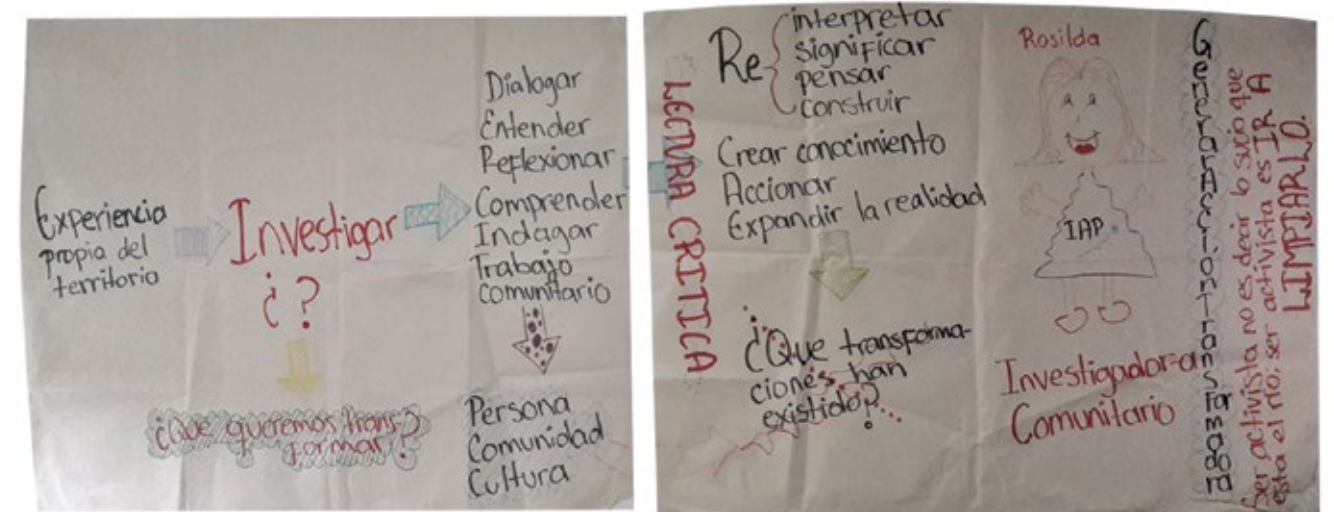 Experiencia
propia del
territorio
Investigar
¿?
¿Que queremos trans-
formar?
Dialogar
Entender
Reflexionar
Comprender
Indagar
Trabajo
comunitario
Persona
Comunidad
Cultura
LECTURA CRITICA
Re
interpretar
significar
pensar
construir
Crear conocimiento
Accionar
Expandir la realidad
¿Que transforma-
ciones han
existido?
Rosilda
IAP
Investigador-a
Comunitario
Generar Acción transformadora
Ser activista no es decir lo sucio que
esta el río; ser activista es IR A
LIMPIARLO.